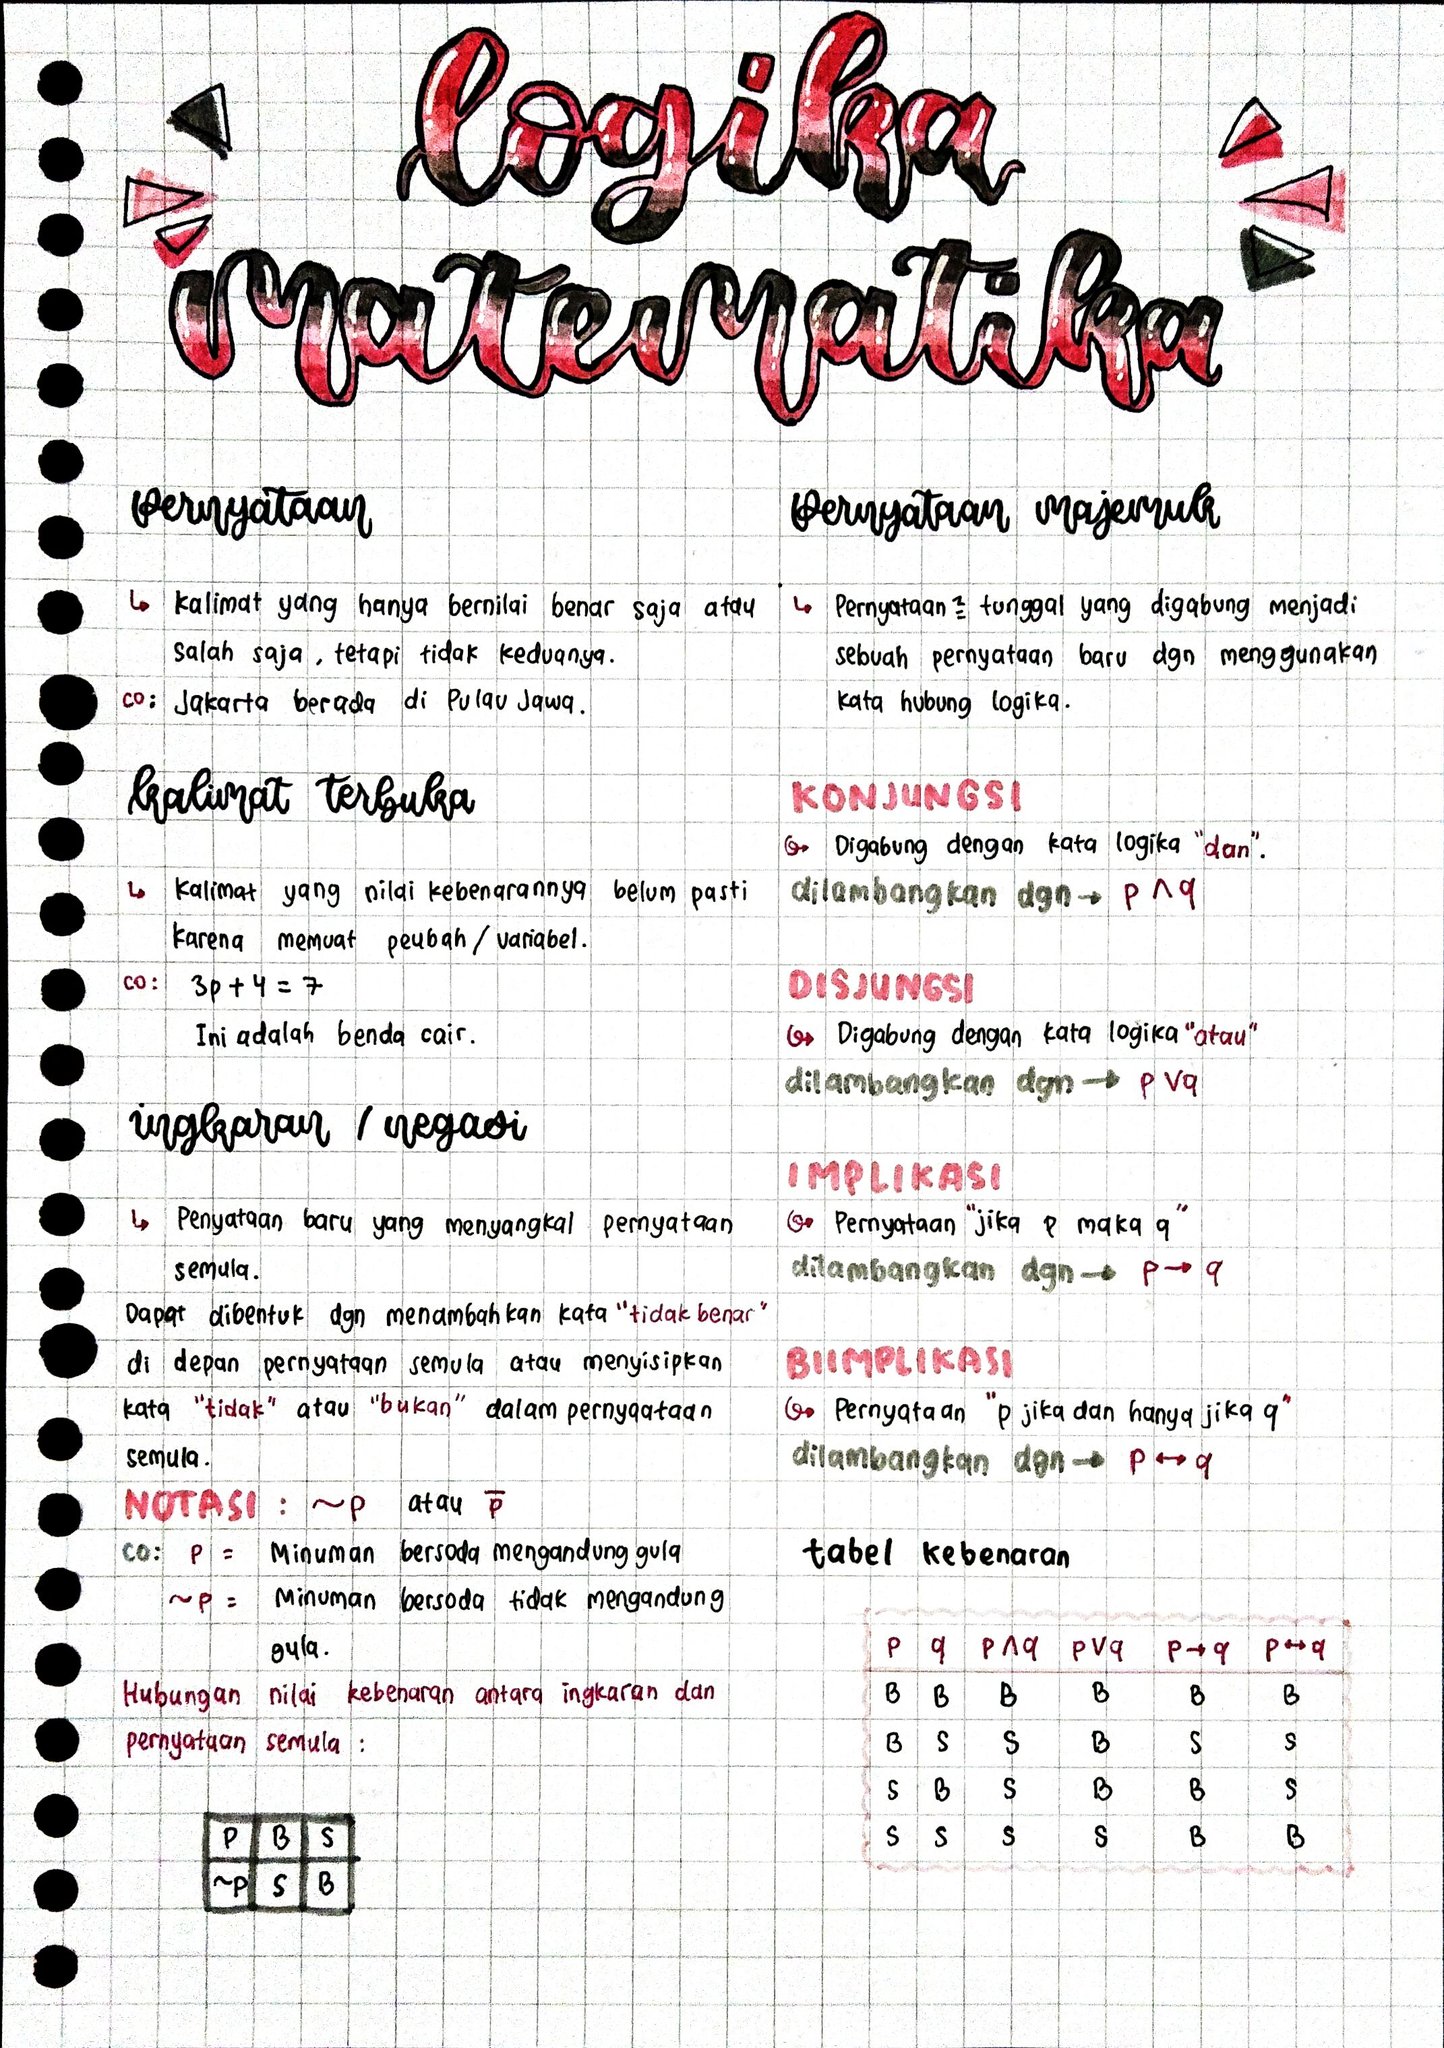 logika
matematika
pernyataan
↳ Kalimat yang hanya bernilai benar saja atau
salah saja, tetapi tidak keduanya.
co: Jakarta berada di Pulau Jawa.
kalimat terbuka
↳ Kalimat yang nilai kebenarannya belum pasti
karena memuat peubah/variabel.
co: 3p + 4 = 7
Ini adalah benda cair.
ingkaran / negasi
↳ Penyataan baru yang menyangkal pernyataan
semula.
Dapat dibentuk dgn menambahkan kata "tidak benar"
di depan pernyataan semula atau menyisipkan
kata "tidak" atau "bukan" dalam pernyataan
semula.
NOTASI : ~p atau p̅
co: p = Minuman bersoda mengandung gula
~p = Minuman bersoda tidak mengandung
gula.
Hubungan nilai kebenaran antara ingkaran dan
pernyataan semula :
P B S
~P S B
pernyataan majemuk
↳ Pernyataan² tunggal yang digabung menjadi
sebuah pernyataan baru dgn menggunakan
kata hubung logika.
KONJUNGSI
↪ Digabung dengan kata logika "dan".
dilambangkan dgn → p ∧ q
DISJUNGSI
↪ Digabung dengan kata logika "atau"
dilambangkan dgn → p ∨ q
IMPLIKASI
↪ Pernyataan "jika p maka q"
dilambangkan dgn → p → q
BIIMPLIKASI
↪ Pernyataan "p jika dan hanya jika q"
dilambangkan dgn → p ↔ q
tabel kebenaran
p q p∧q p∨q p→q p↔q
B B B B B B
B S S B S S
S B S B B S
S S S S B B